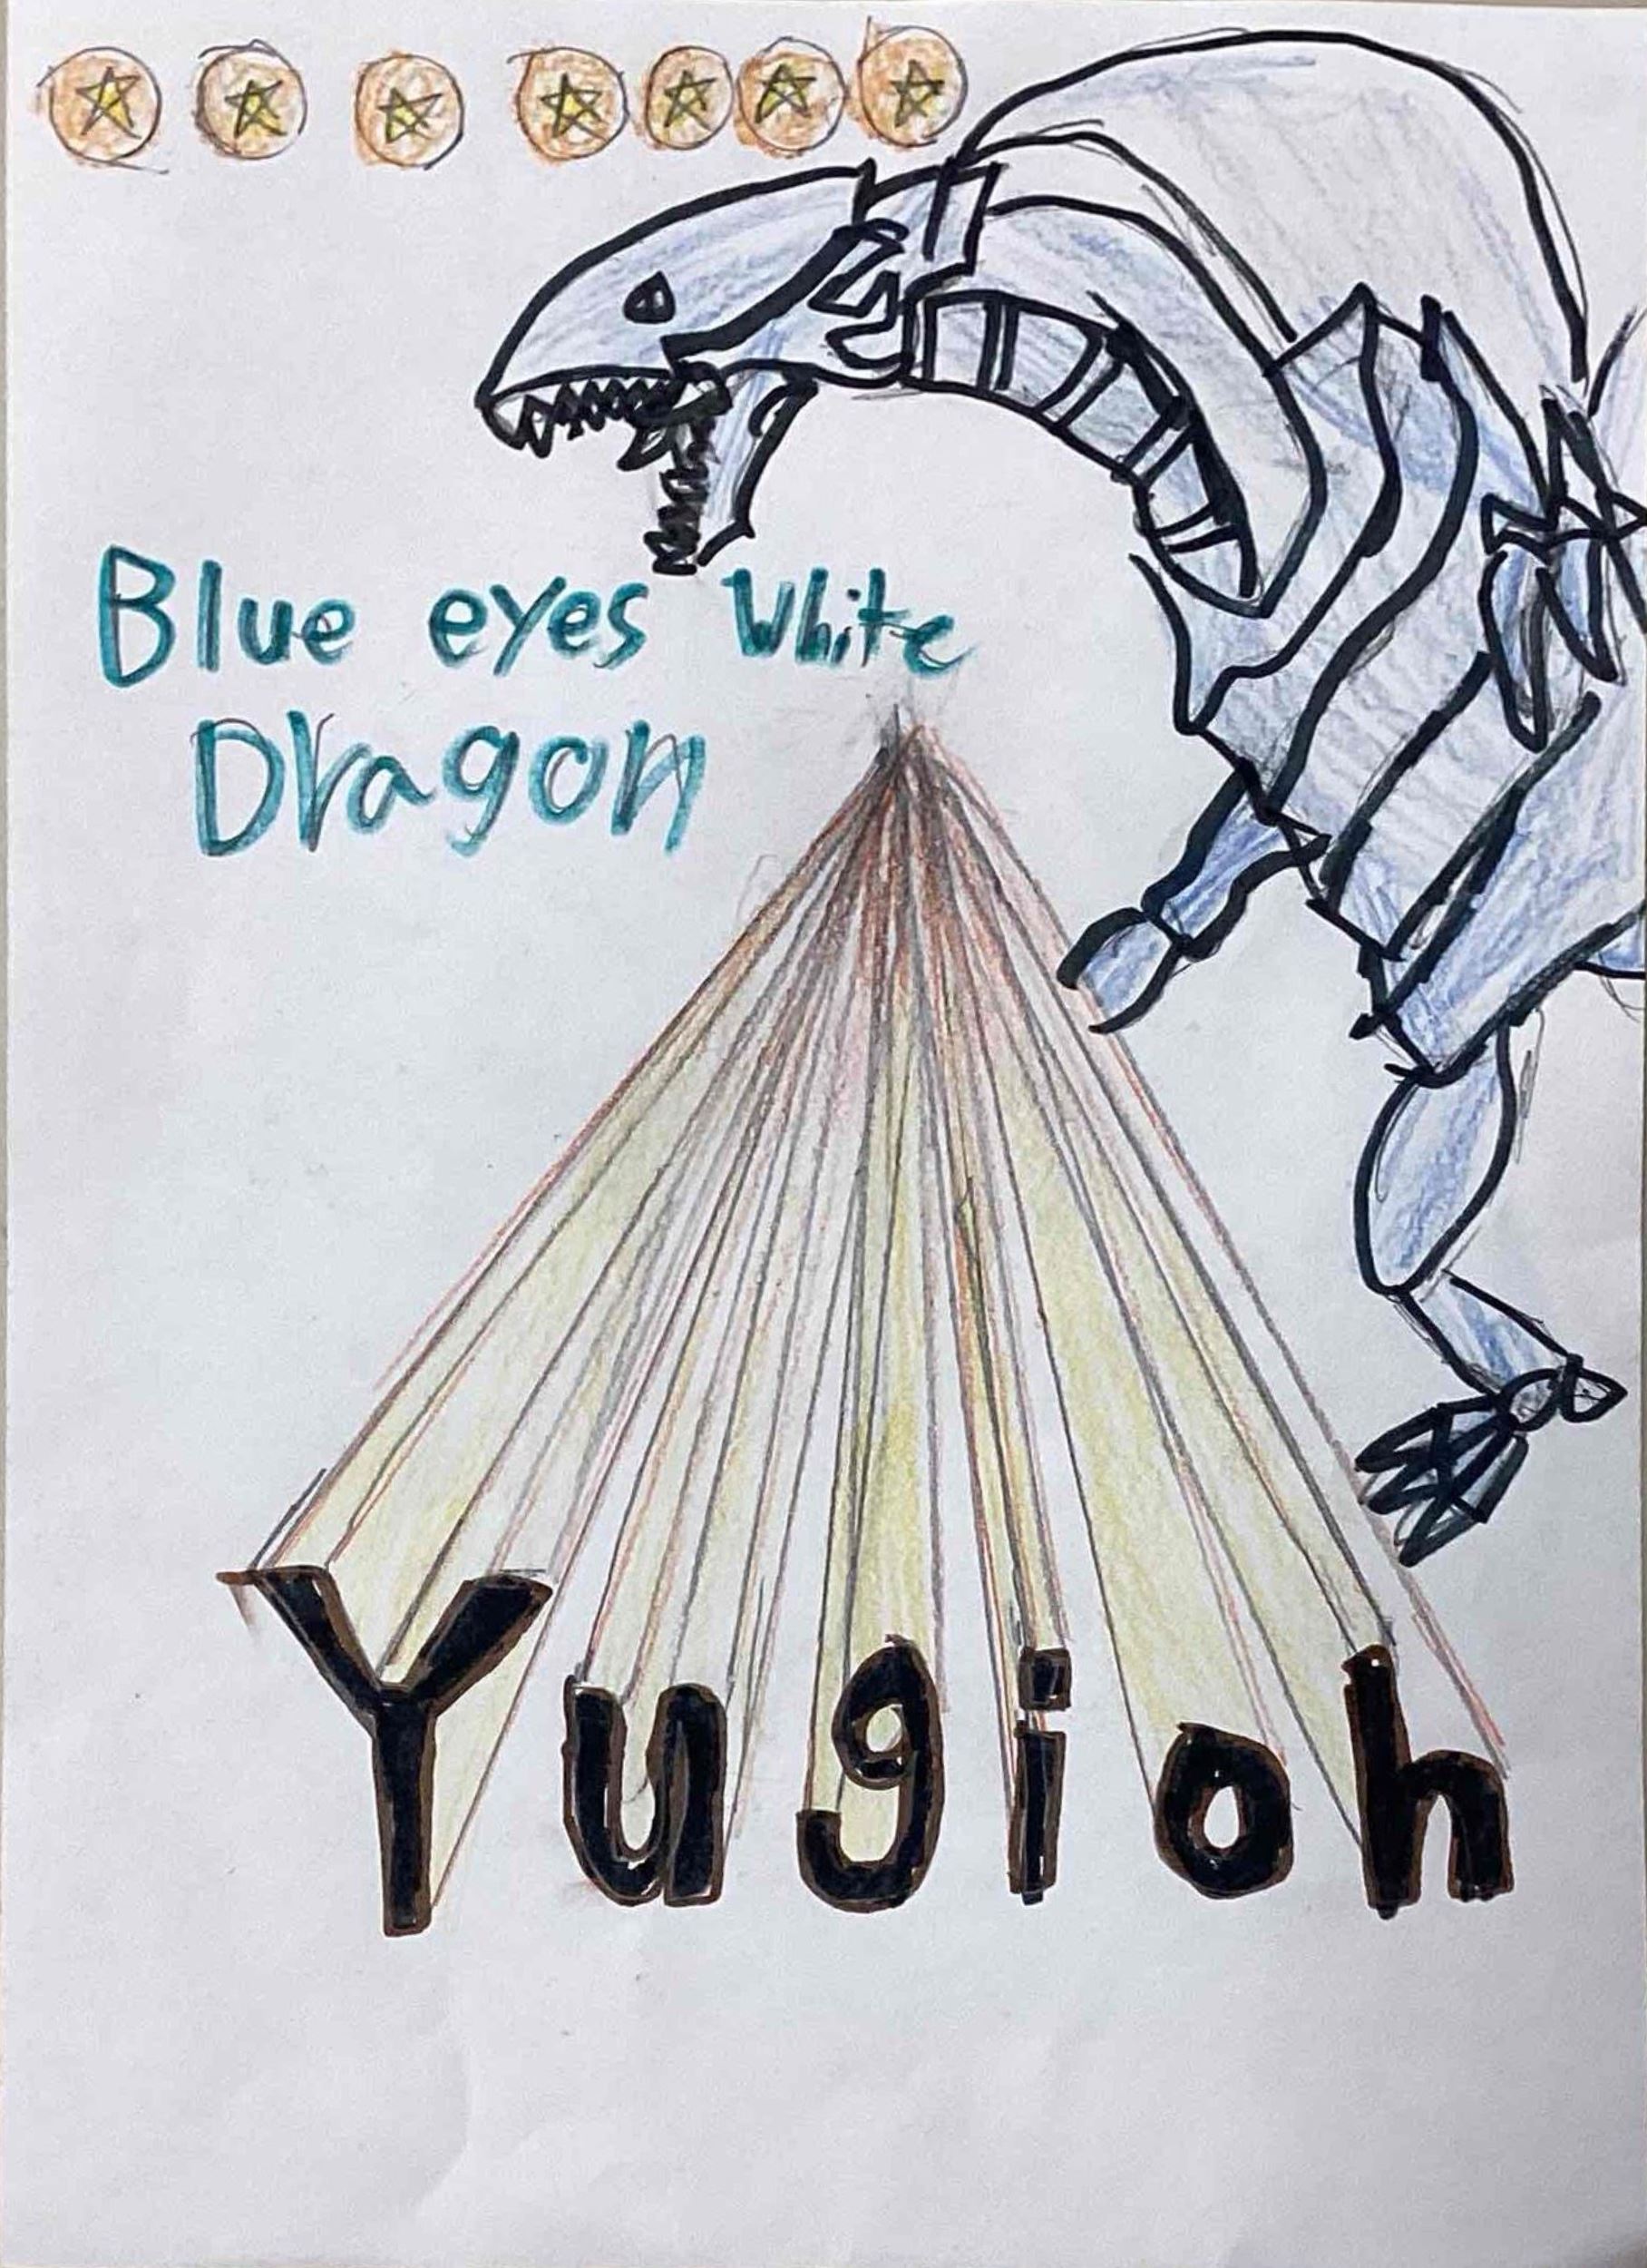 Blue eyes White
Dragon
Yugioh